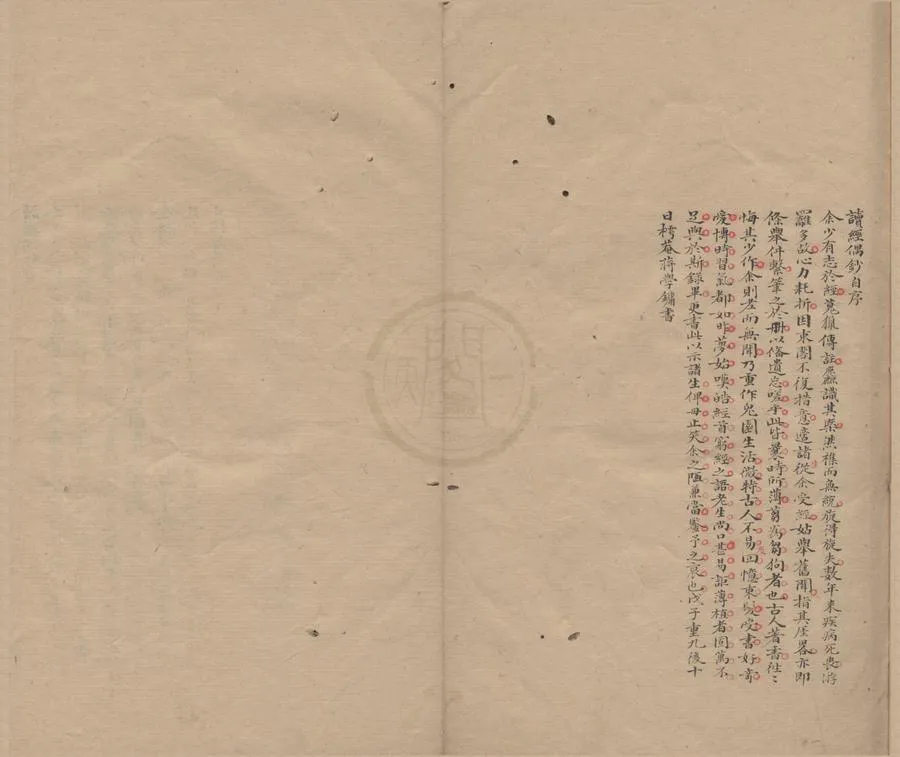 讀經偶鈔自序
余少有志於經蒐獵傳註麤識其槩然襍而無統旋得旋失數年来疾病死喪游
罹多故心力耗折因束閣不復措意適諸從余受經姑舉舊聞指其厓畧亦即
條舉件繫筆之於冊以俻遺忘嗟乎此皆曩時所薄蒭為芻狗者也古人著書往〻
悔其少作余則老而無聞乃重作兔園生活微特古人不易回憶束髮受書好奇
愛博時習氣都如昨夢始嘆皓經首窮經之語老生尚口甚易詎薄植者固萬不
足與於斯録畢更書此以示諸生俾毋止笑余之陋兼當鑒予之衰也戊子重九後十
日樗菴蔣學鏞書